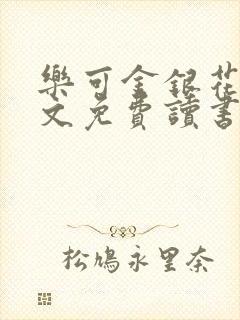 樂可金銀花
文免費讀書
松鳩永里奈